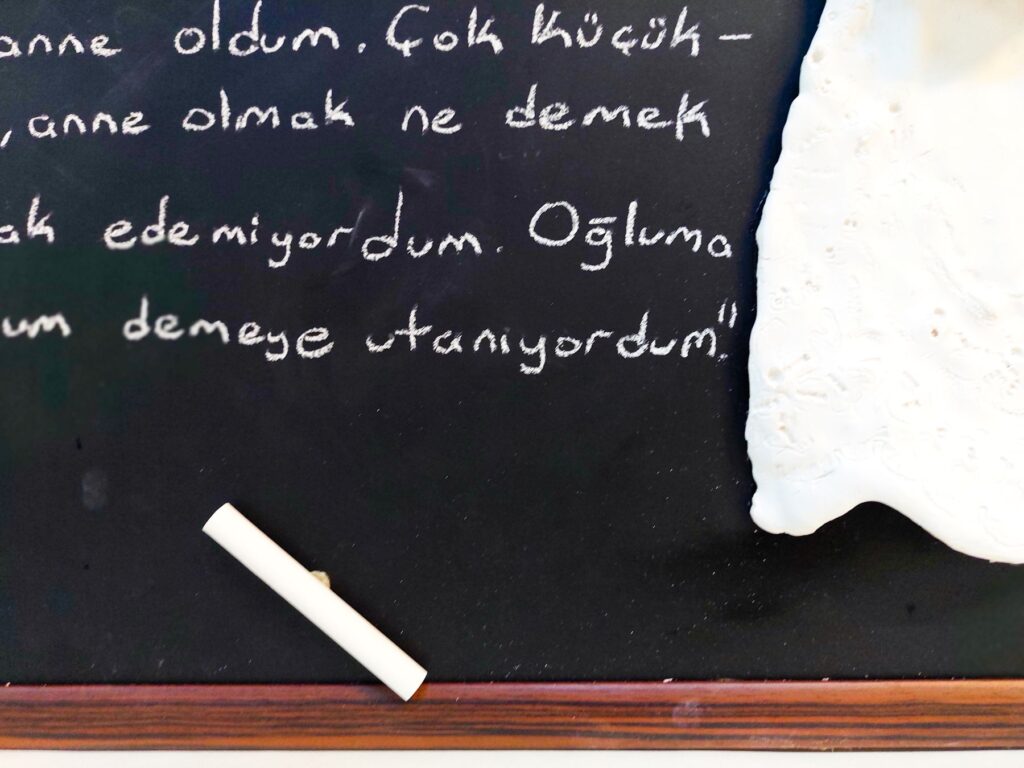 anne oldum. Çok küçük-
, anne olmak ne demek
ak edemiyordum. Oğluma
um demeye utanıyordum."